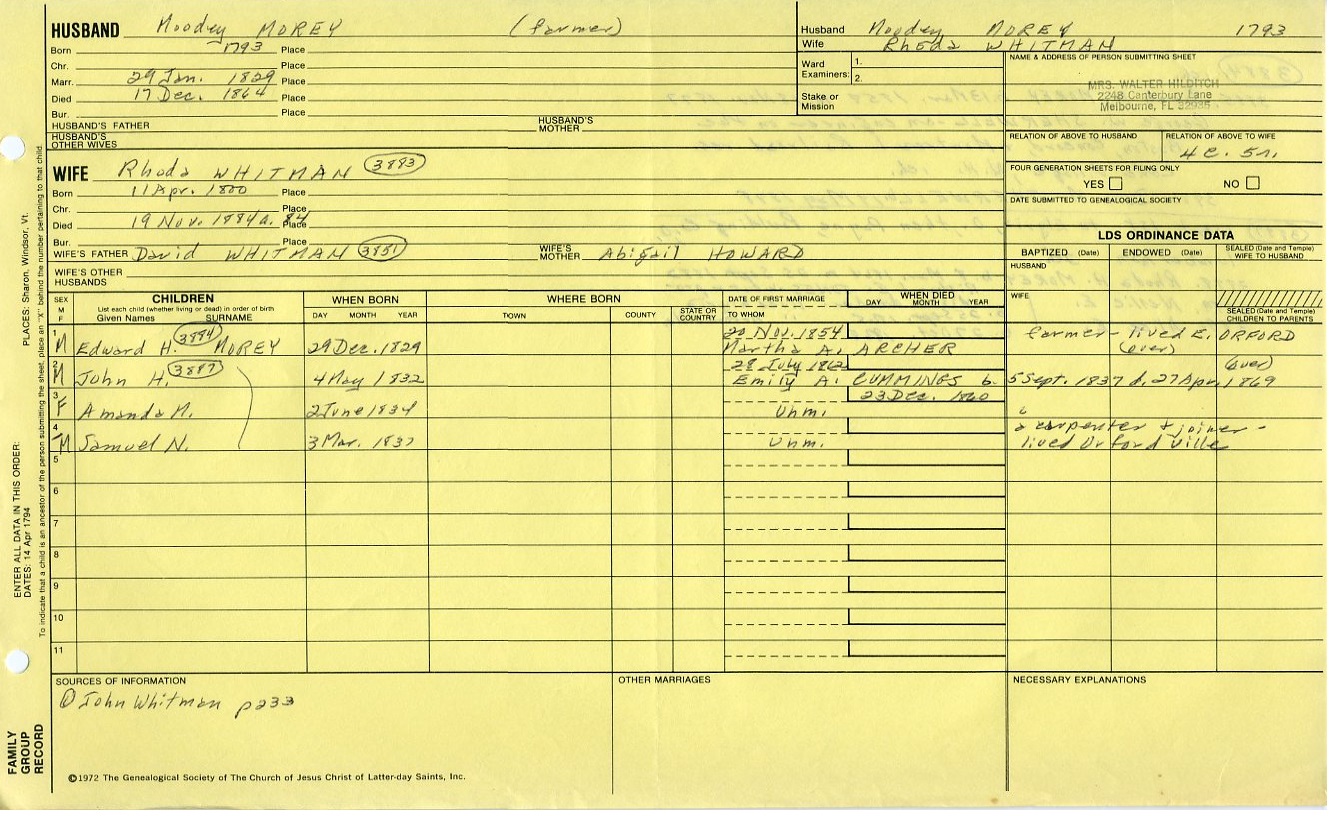 HUSBAND Moodey MOREY (farmer)
Born 1793 Place
Chr. Place
Marr. 29 Jan. 1829 Place
Died 17 Dec. 1864 Place
Bur. Place
HUSBAND'S FATHER HUSBAND'S MOTHER
HUSBAND'S OTHER WIVES
Husband Moodey MOREY 1793
Wife Rhoda WHITMAN
Ward Examiners: 1.
2.
Stake or Mission
NAME & ADDRESS OF PERSON SUBMITTING SHEET
MRS. WALTER HILDITCH
2248 Canterbury Lane
Melbourne, FL 32935
RELATION OF ABOVE TO HUSBAND RELATION OF ABOVE TO WIFE
4c. 5r.
FOUR GENERATION SHEETS FOR FILING ONLY
YES NO
DATE SUBMITTED TO GENEALOGICAL SOCIETY
WIFE Rhoda WHITMAN 3883
Born 11 Apr. 1800 Place
Chr. Place
Died 19 Nov. 1884 a. 84 Place
Bur. Place
WIFE'S FATHER David WHITMAN 3851 WIFE'S MOTHER Abigail HOWARD
WIFE'S OTHER HUSBANDS
LDS ORDINANCE DATA
BAPTIZED (Date) ENDOWED (Date) SEALED (Date and Temple) WIFE TO HUSBAND
HUSBAND
WIFE
SEALED (Date and Temple) CHILDREN TO PARENTS
SEX M F CHILDREN WHEN BORN WHERE BORN DATE OF FIRST MARRIAGE WHEN DIED
List each child (whether living or dead) in order of birth
Given Names SURNAME DAY MONTH YEAR TOWN COUNTY STATE OR COUNTRY TO WHOM DAY MONTH YEAR
1 M Edward H. 3884 MOREY 29 Dec. 1829 20 Nov. 1854 Martha A. ARCHER farmer - lived E. ORFORD (over)
2 M John H. 3887 4 May 1832 28 July 1862 Emily A. CUMMINGS b. 5 Sept. 1837 d. 27 Apr. 1869 (over)
3 F Amanda M. 2 June 1834 Unm. 23 Dec. 1860
4 M Samuel N. 3 Mar. 1837 Unm. a carpenter & joiner - lived Orford Ville
5
6
7
8
9
10
11
SOURCES OF INFORMATION OTHER MARRIAGES NECESSARY EXPLANATIONS
① John Whitman p233
©1972 The Genealogical Society of The Church of Jesus Christ of Latter-day Saints, Inc.
FAMILY GROUP RECORD
ENTER ALL DATA IN THIS ORDER:
DATES: 14 Apr 1794 PLACES: Sharon, Windsor, Vt.
To indicate that a child is an ancestor of the person submitting the sheet, place an "X" behind the number pertaining to that child.